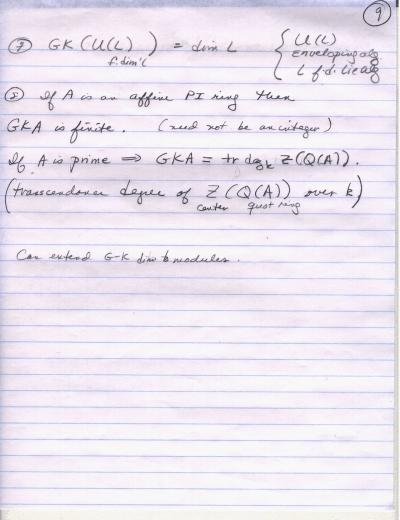 9
⑦ GK(U(L)) = dim L { U(L)
f. dim'l enveloping alg
L f.d. Lie alg
⑧ If A is an affine PI ring then
GKA is finite. (need not be an integer)
If A is prime ⇒ GKA = tr deg_k Z(Q(A)).
(transcendance degree of Z(Q(A)) over k)
center quot ring
Can extend G-K dim to modules.